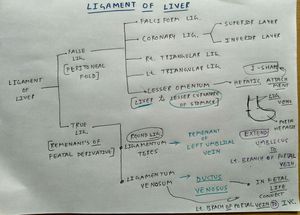 LIGAMENT OF LIVER
FALCIFORM LIG.
SUPERIOR LAYER
CORONARY LIG.
INFERIOR LAYER
FALSE LIG.
[PERITONEAL FOLD]
Rt. TRIANGULAR LIG
Lt. TRIANGULAR LIG
J-SHAPE
LESSER OMENTUM
HEPATIC ATTACHMENT
LIVER & LESSER CURVATURE OF STOMACH
LIGAMENT OF LIVER
LIG. VEN
PORTA HEPATIS
TRUE LIG.
[REMENANTS OF FEATAL DERIVATIVE]
ROUND LIG.
LIGAMENTUM TERES
REMENANT OF LEFT UMBLIAL VEIN
EXTEND
UMBLICUS TO
Lt. BRANCH OF PORTAL VEIN
LIGAMENTUM VENOSUM
DUCTUS VENOSUS
IN FETAL LIFE
CONNECT
Lt. BRANCH OF PORTAL VEIN TO IVC